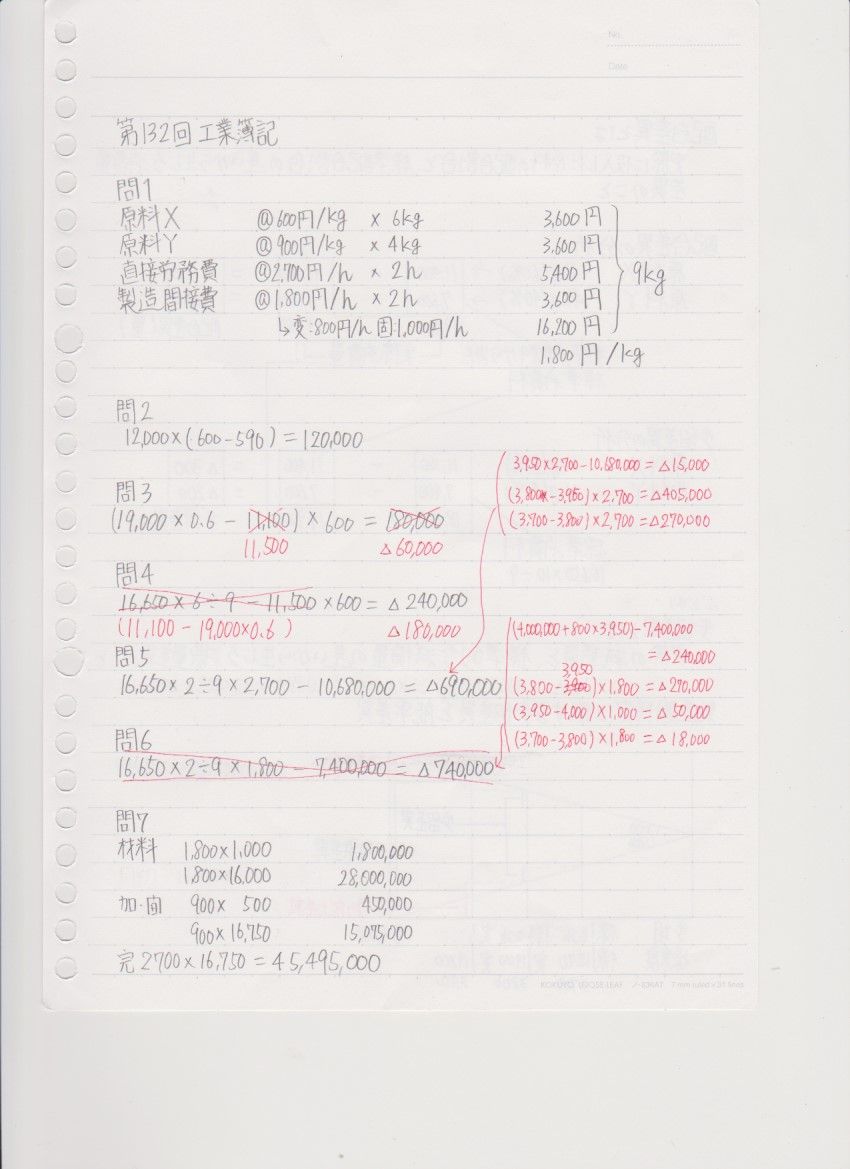 No.
Date
第132回 工業簿記
問1
原料X @600円/kg × 6kg 3,600円
原料Y @900円/kg × 4kg 3,600円
直接労務費 @2,700円/h × 2h 5,400円
製造間接費 @1,800円/h × 2h 3,600円
↳変:800円/h 固:1,000円/h 16,200円
9kg
1,800円/kg
問2
12,000×(600-590)=120,000
問3
(19,000×0.6-11,100)×600=180,000
11,500 △60,000
問4
16,650×6÷9-11,500×600=△240,000
(11,100-19,000×0.6) △180,000
問5
16,650×2÷9×2,700-10,680,000=△690,000
3,950×2,700-10,680,000=△15,000
(3,800-3,950)×2,700=△405,000
(3,700-3,800)×2,700=△270,000
問6
16,650×2÷9×1,800-7,400,000=△740,000
(4,000,000+800×3,950)-7,400,000
=△240,000
3,950
(3,800-3,900)×1,800=△270,000
(3,950-4,000)×1,000=△50,000
(3,700-3,800)×1,800=△18,000
問7
材料 1,800×1,000 1,800,000
1,800×16,000 28,000,000
加・間 900× 500 450,000
900×16,750 15,075,000
完 2700×16,750=45,495,000
KOKUYO LOOSE-LEAF ノ-836AT 7 mm ruled x 31 lines